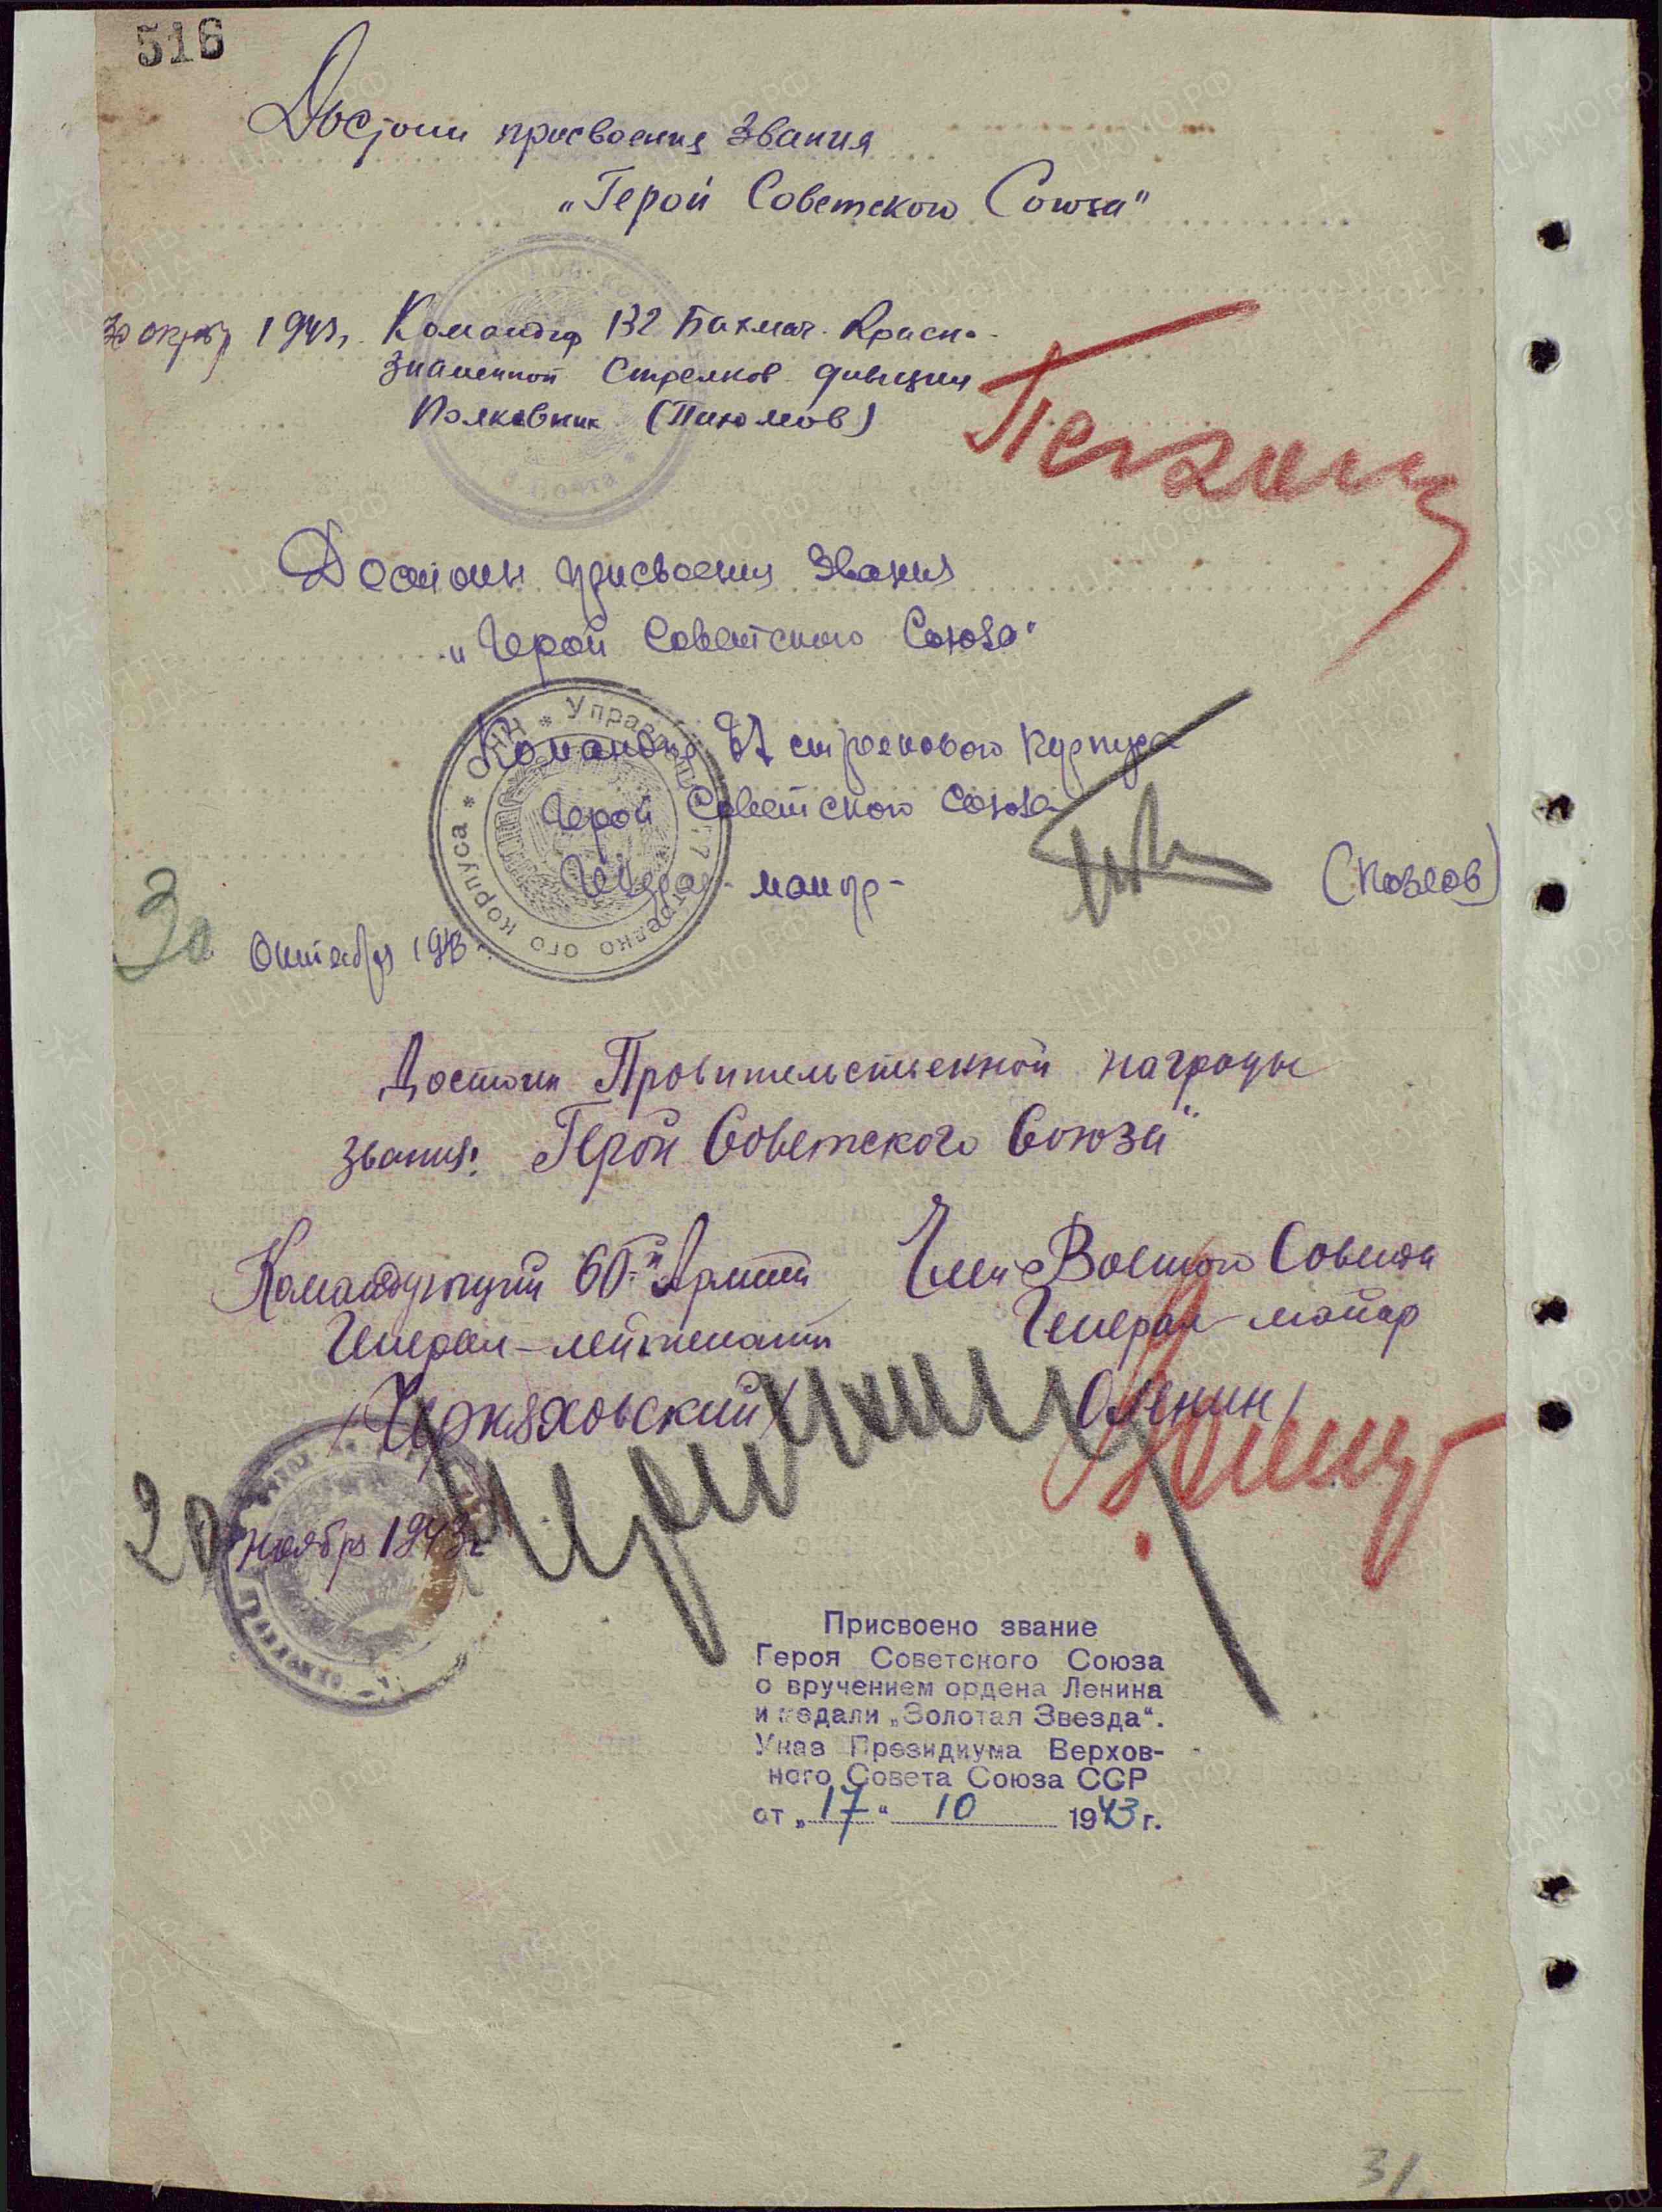 516
Достоин присвоения звания
„Герой Советского Союза"
30 октябр 1943г. Командир 132 Бахмач. Красно-
знаменной Стрелков. дивизии
Полковник (Шкрылев)
Достоин присвоения звания
„Герой Советского Союза"
Командир 77 стрелкового корпуса
Герой Советского Союза
Генерал-майор- (Козлов)
30 Октября 1943
Достоин Правительственной награды
звания: Герой Советского Союза"
Командующий 60-й Армии
Генерал-лейтенант
/Черняховский/
Член Военного Совета
Генерал-майор
Оленин/
20 ноября 1943г
Присвоено звание
Героя Советского Союза
с вручением ордена Ленина
и медали „Золотая Звезда“.
Указ Президиума Верхов-
ного Совета Союза ССР
от „17“ 10 1943 г.
31.